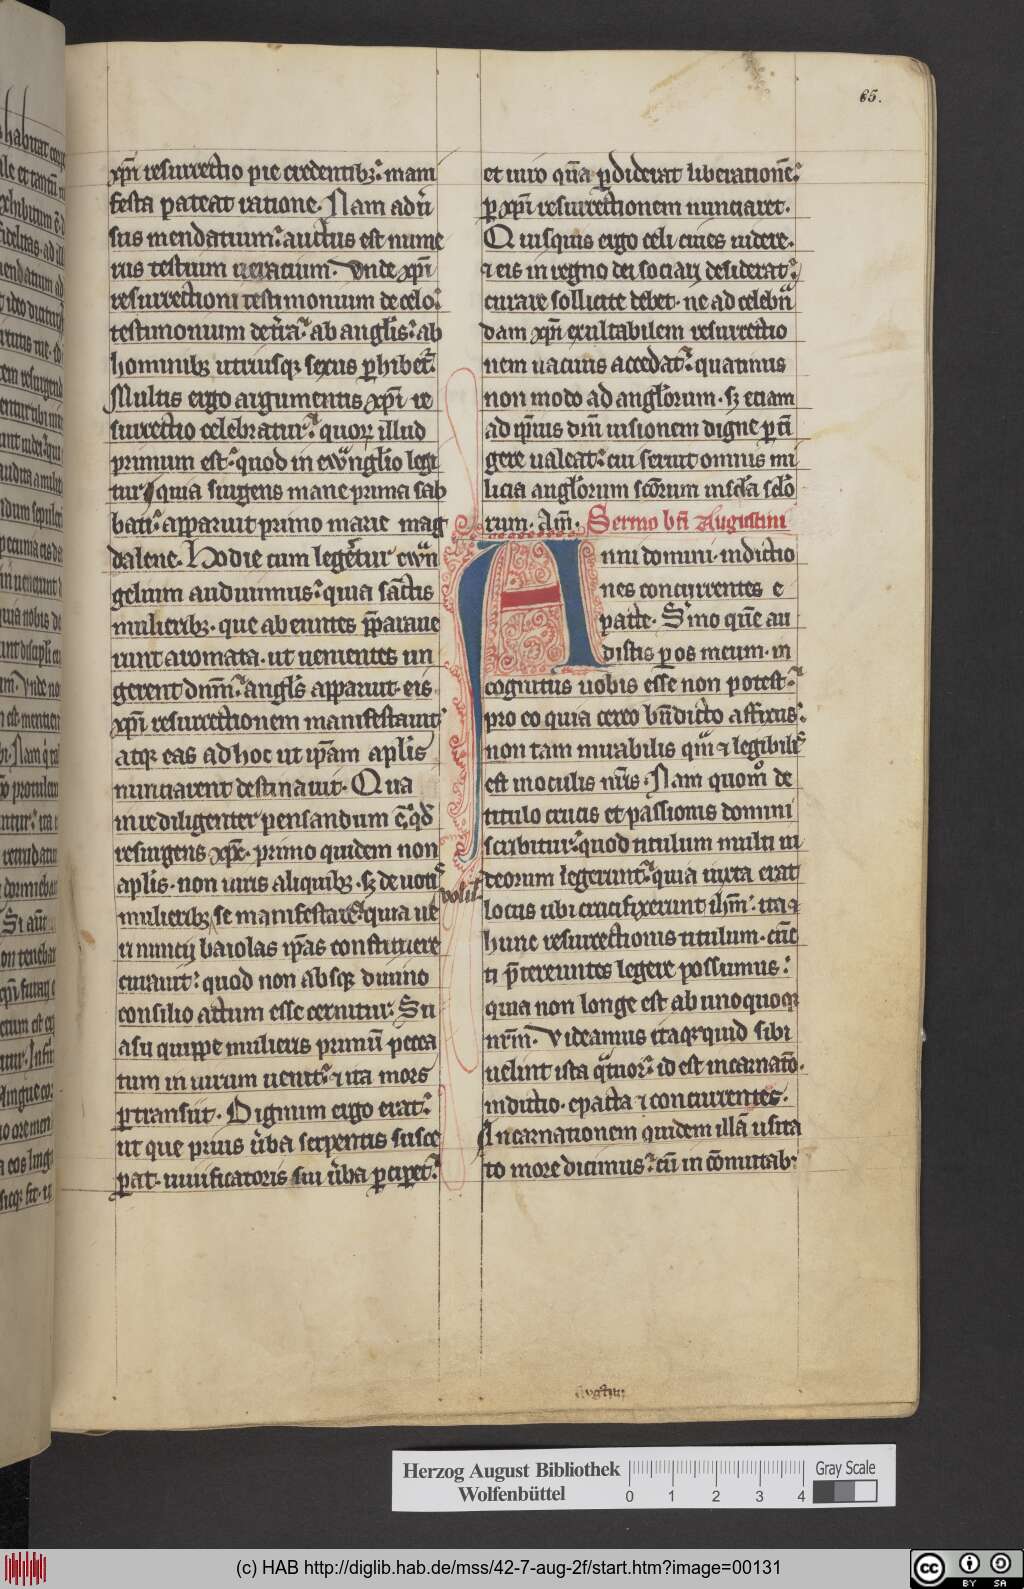 65.
xp̄i resurrectio pie credentibꝫ. mani
festa pateat ratione. Nam ad ūi
suis mendatium. auctus est nume
rus testium ueratium. Vnde xp̄i
resurrectioni testimonium de celo.
testimonium de t̄ra. ab angl̄is. ab
hominibꝫ utriusqꝫ sexus ꝑhibet̄.
Multis ergo argumentis xp̄i re
surrectio celebratur. quoꝝ illud
primum est. quod in ewanglio legi
tur quia surgens mane prima sab
bati. apparuit primo marie mag
dalene. Hodie cum legeretur ewan
gelium audiuimus. quia sanctis
mulieribꝫ. que abeuntes p̄paraue
runt aromata. ut uenientes un
gerent dn̄m. angl̄s apparuit. eis
xp̄i resurrectionem manifestauit.
atqꝫ eas ad hoc ut ip̄am apl̄is
nunciarent destinauit. Qua
in re diligenter pensandum ē. qd̄
resurgens xp̄c. primo quidem non
apl̄is. non uiris aliquibꝫ. sꝫ deuotis
mulieribꝫ se manifestare. quia ue
volu͛
ri nuncij baiolas ip̄as constituere
curauit. quod non absqꝫ diuino
consilio actum esse cernitur. Su
asu quippe mulieris primū pecca
tum in uirum uenit. ⁊ ita mors
ꝑtransiit. Dignum ergo erat.
ut que prius ūba serpentis susce
ꝑat. uiuificatoris sui ūba ꝑciꝑet.
et uiro quā ꝑdiderat liberationē.
ꝑ xp̄i resurrectionem nunciaret.
Quisquis ergo celi ciues uidere.
⁊ eis in regno dei sociari desiderat.
curare sollicite debet. ne ad celebrā
dam xp̄i exultabilem resurrectio
nem uacuus accedat. quatinus
non modo ad angl̄orum. sꝫ etiam
ad ip̄ius dn̄i uisionem digne ꝑtī
gere ualeat. cui seruit omnis mi
licia angl̄orum sc̄orum in sc̄la sc̄lo
rum. Am̄. Sermo bn̄ Augustini
Anni domini. indictio
nes concurrentes e
pacte. Sīmo quē au
distis ꝑ os meum. in
cognitus uobis esse non potest.
pro eo quia cereo bn̄dicto affixus.
non tam mirabilis qm̄ ⁊ legibilis
est in oculis nr̄is. Nam quomō de
titulo crucis et passionis domini
scribitur. quod titulum multi iu
deorum legerunt. quia iuxta erat
locus ubi crucifixerunt ihm̄. ita ⁊
hunc resurrectionis titulum. cūc
ti p̄tereuntes legere possumus.
quia non longe est ab unoquoqꝫ
nr̄m. Videamus itaqꝫ quid sibi
uelint ista quatuor. id est incarnatō.
indictio. epacta ⁊ concurrentes.
Incarnationem quidem illā usita
to more dicimus. cū in cōmutab.
Herzog August Bibliothek
Wolfenbüttel
0 1 2 3 4
Gray Scale
(c) HAB http://diglib.hab.de/mss/42-7-aug-2f/start.htm?image=00131
cc BY SA